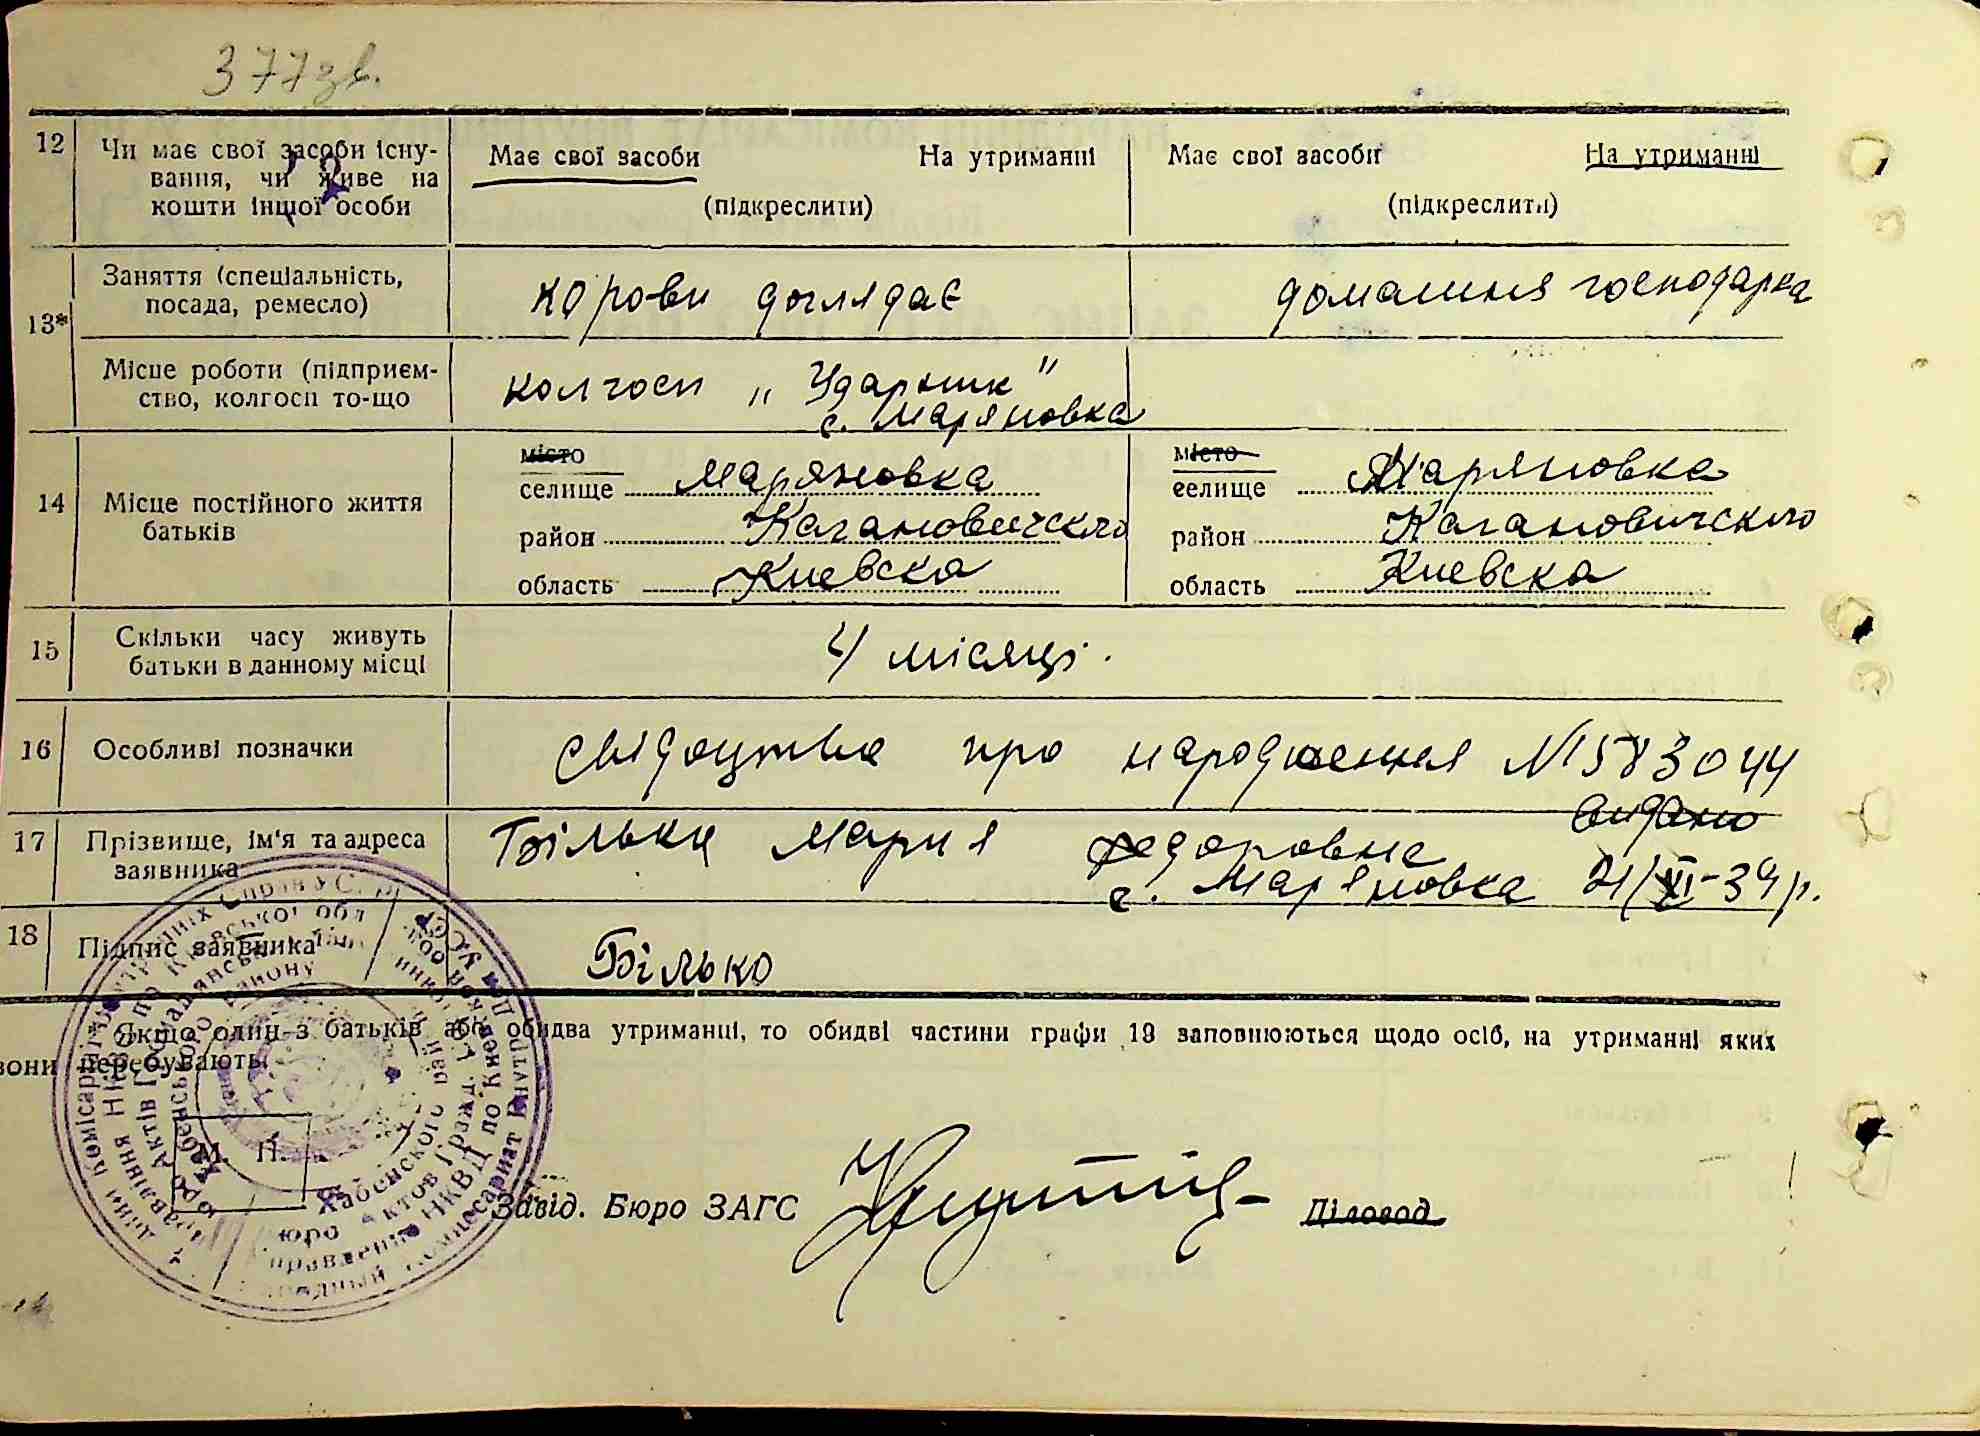 377 зв.
12 Чи має свої засоби існу- Має свої засоби На утриманні Має свої засоби На утриманні
вання, чи живе на
кошти іншої особи (підкреслити) (підкреслити)
13* Заняття (спеціальність, корови доглядає домашня господарка
посада, ремесло)
Місце роботи (підприєм- колгосп „Ударник"
ство, колгосп то-що с. Маряновка
14 Місце постійного життя
батьків
місто місто
селище Маряновка селище Маряновка
район Кагановичского район Кагановичского
область Киевска область Киевска
15 Скільки часу живуть 4 місяці.
батьки в данному місці
16 Особливі позначки свідоцтво про народження №583044
видано
17 Прізвище, ім'я та адреса Білько Мария Федоровна
заявника с. Маряновка 21/XI-39 р.
18 Підпис заявника Білько
Якщо один з батьків або обидва утриманці, то обидві частини графи 13 заповнюються щодо осіб, на утриманні яких
вони перебувають.
М. П.
Завід. Бюро ЗАГС Діловод